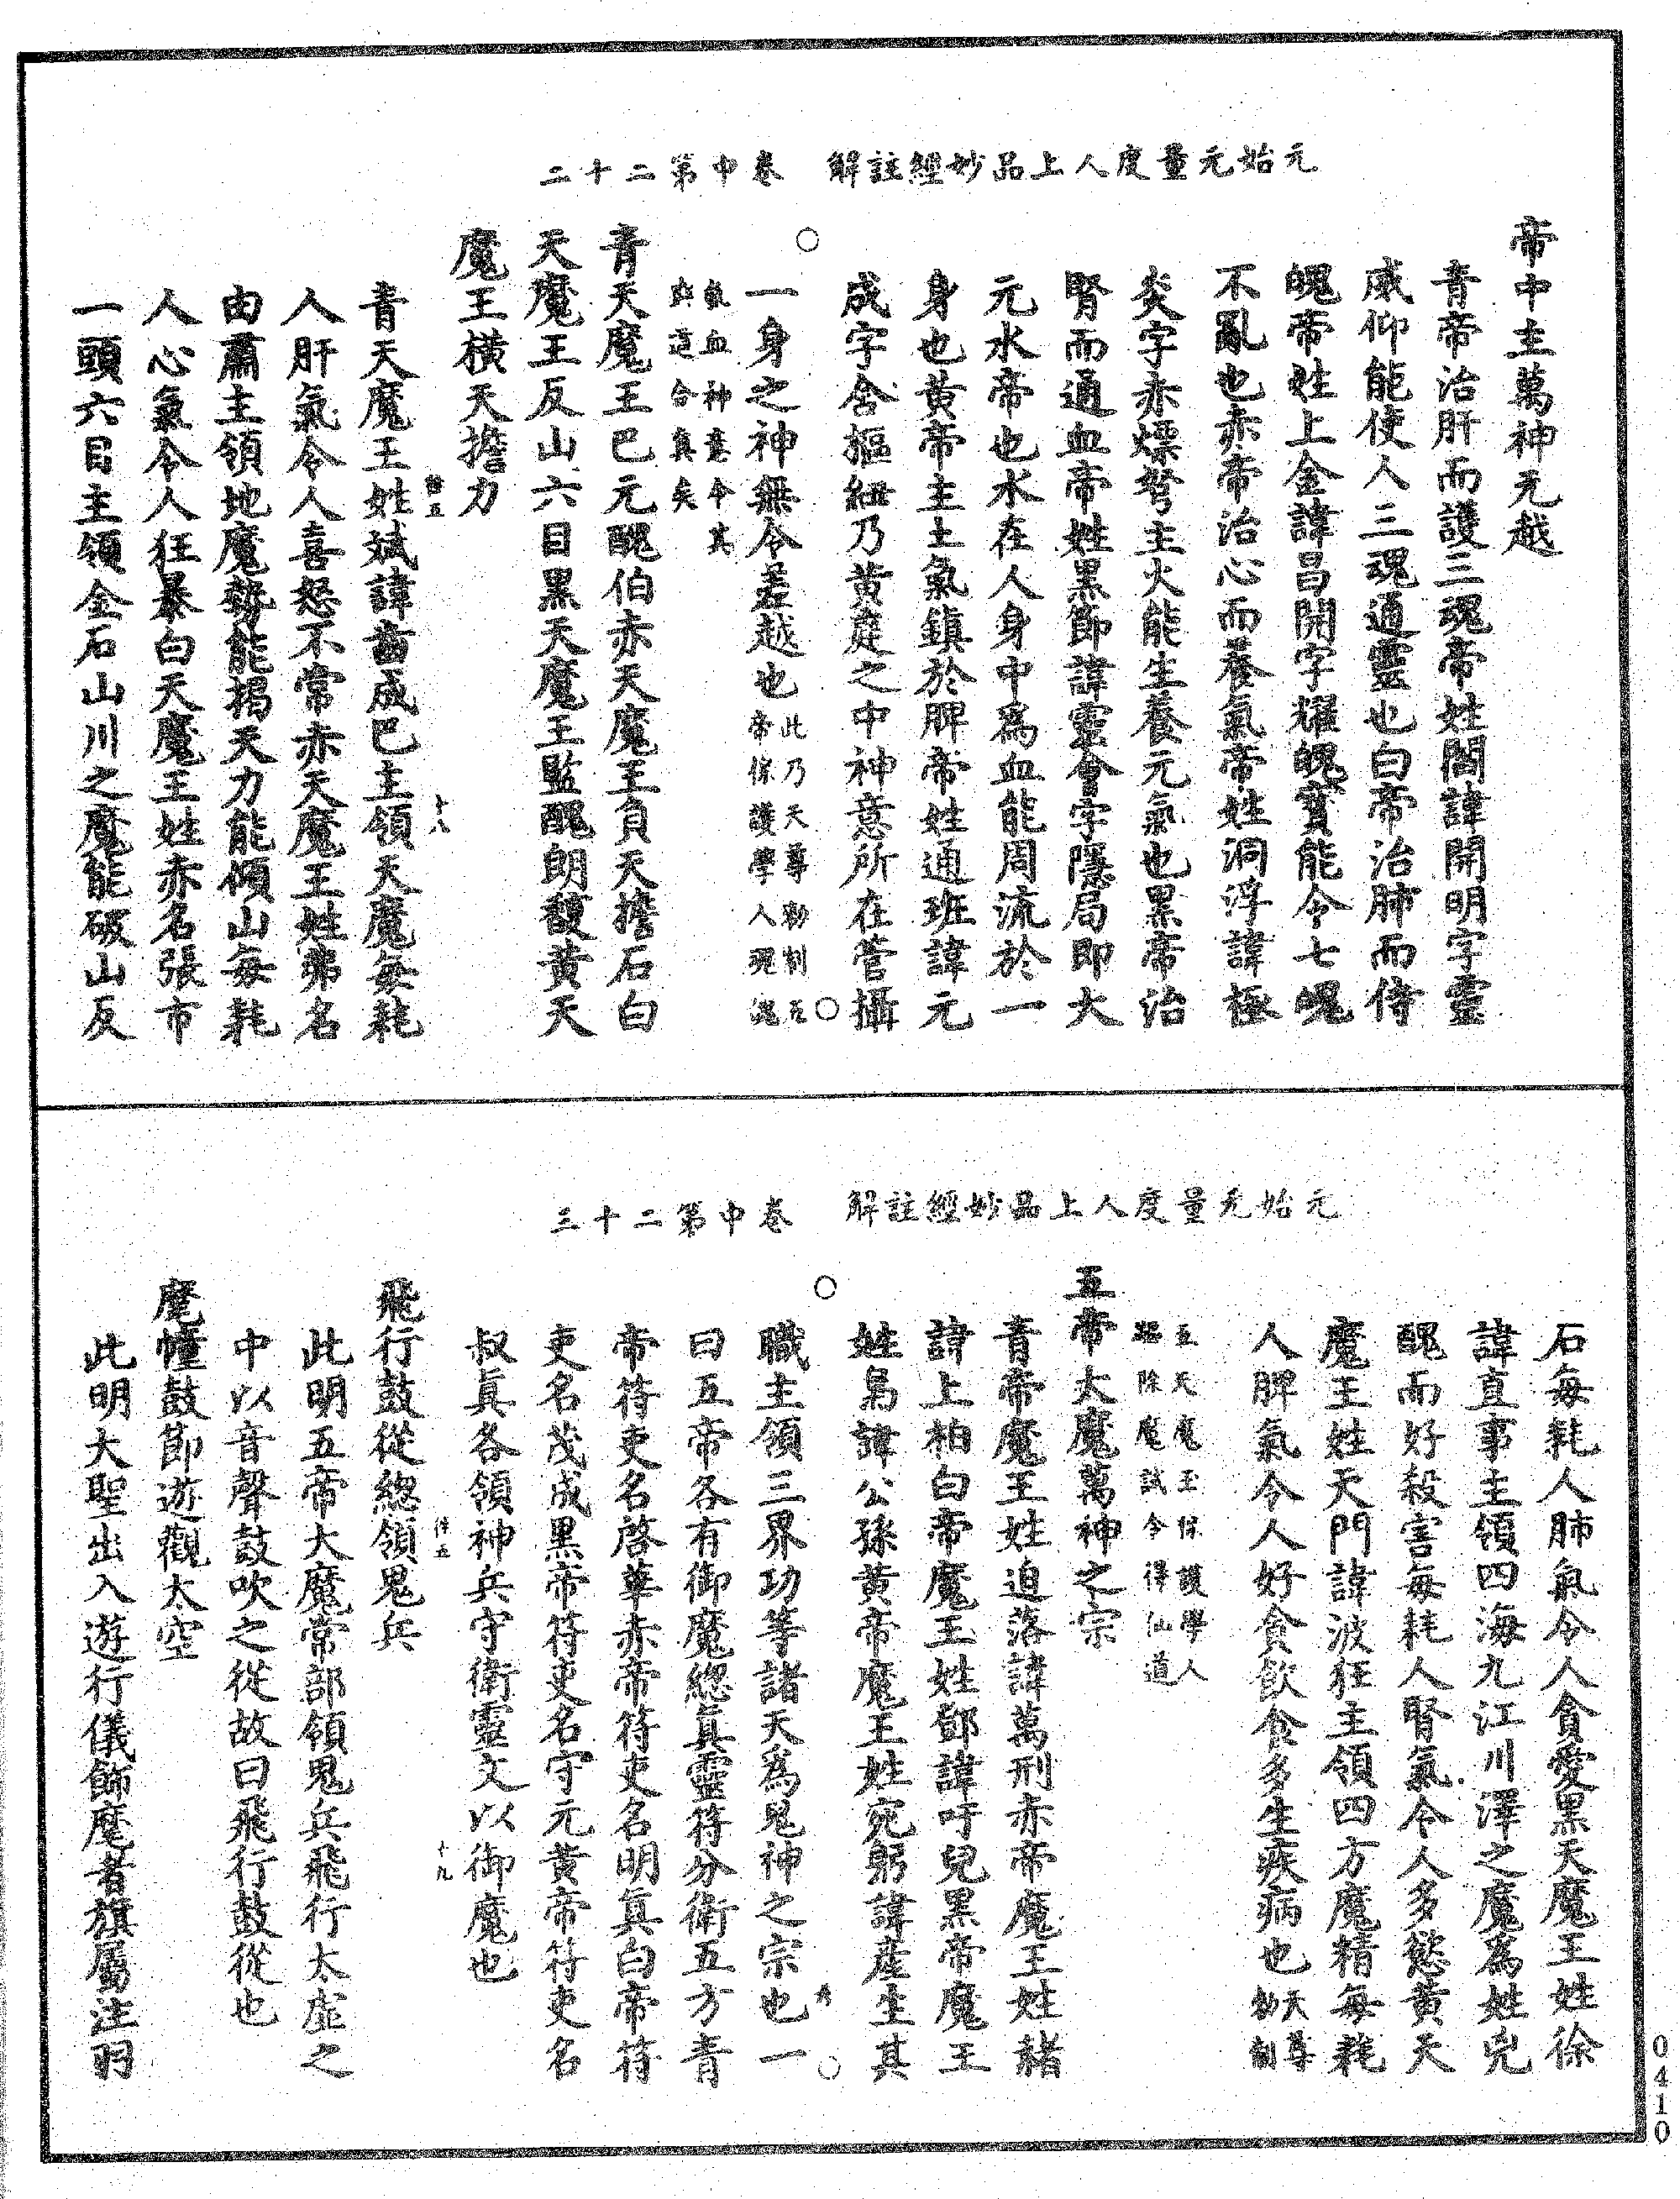 元始无量度人上品妙經註解　卷中第二十二
帝中主萬神无越
青帝治肝而護三魂帝姓閻諱開明字靈
威仰能使人三魂通靈也白帝治肺而侍
魄帝姓上金諱昌開字耀魄寶能令七魄
不亂也赤帝治心而養氣帝姓洞浮諱極
炎字赤熛弩主火能生養元氣也黑帝治
腎而通血帝姓黑節諱靈會字隱局即大
元水帝也水在人身中為血能周流於一
身也黃帝主土氣鎮於脾帝姓通班諱元
成字含樞紐乃黃庭之中神意所在管攝
一身之神無令差越也此乃天尊勑制五
帝保護學人魂魄
氣血神意令其
與道合真矣
青天魔王巴元醜伯赤天魔王負天擔石白
天魔王反山六目黑天魔王監醜朗馥黃天
魔王橫天擔力
青天魔王姓斌諱齒成巴主領天魔每耗
人肝氣令人喜怒不常赤天魔王姓弗名
由肅主領地魔勢能揭天力能傾山每耗
人心氣令人狂暴白天魔王姓赤名張市
一頭六目主領金石山川之魔能破山反
元始无量度人上品妙經註解　卷中第二十三
石每耗人肺氣令人貪愛黑天魔王姓徐
諱直事主領四海九江川澤之魔為姓兇
醜而好殺害每耗人腎氣令人多慾黃天
魔王姓天門諱波狂主領四方魔精每耗
人脾氣令人好食飲食多生疾病也天尊
勑制
五天魔王保護學人
蹈除魔試令得仙道
五帝大魔萬神之宗
青帝魔王姓迫落諱萬刑赤帝魔王姓赭
諱上柏白帝魔王姓鄧諱吁兒黑帝魔王
姓舄諱公孫黃帝魔王姓宛躬諱產生其
職主領三界功等諸天為鬼神之宗也一
曰五帝各有御魔總真靈符分衛五方青
帝符吏名啓華赤帝符吏名明真白帝符
吏名茂成黑帝符吏名守元黃帝符吏名
叔真各領神兵守衛靈文以御魔也
飛行鼓從總領鬼兵
此明五帝大魔常部領鬼兵飛行太虛之
中以音聲鼓吹之從故曰飛行鼓從也
麾幢鼓節遊觀太空
此明大聖出入遊行儀飾麾者旗屬注羽
十八
十九
0410